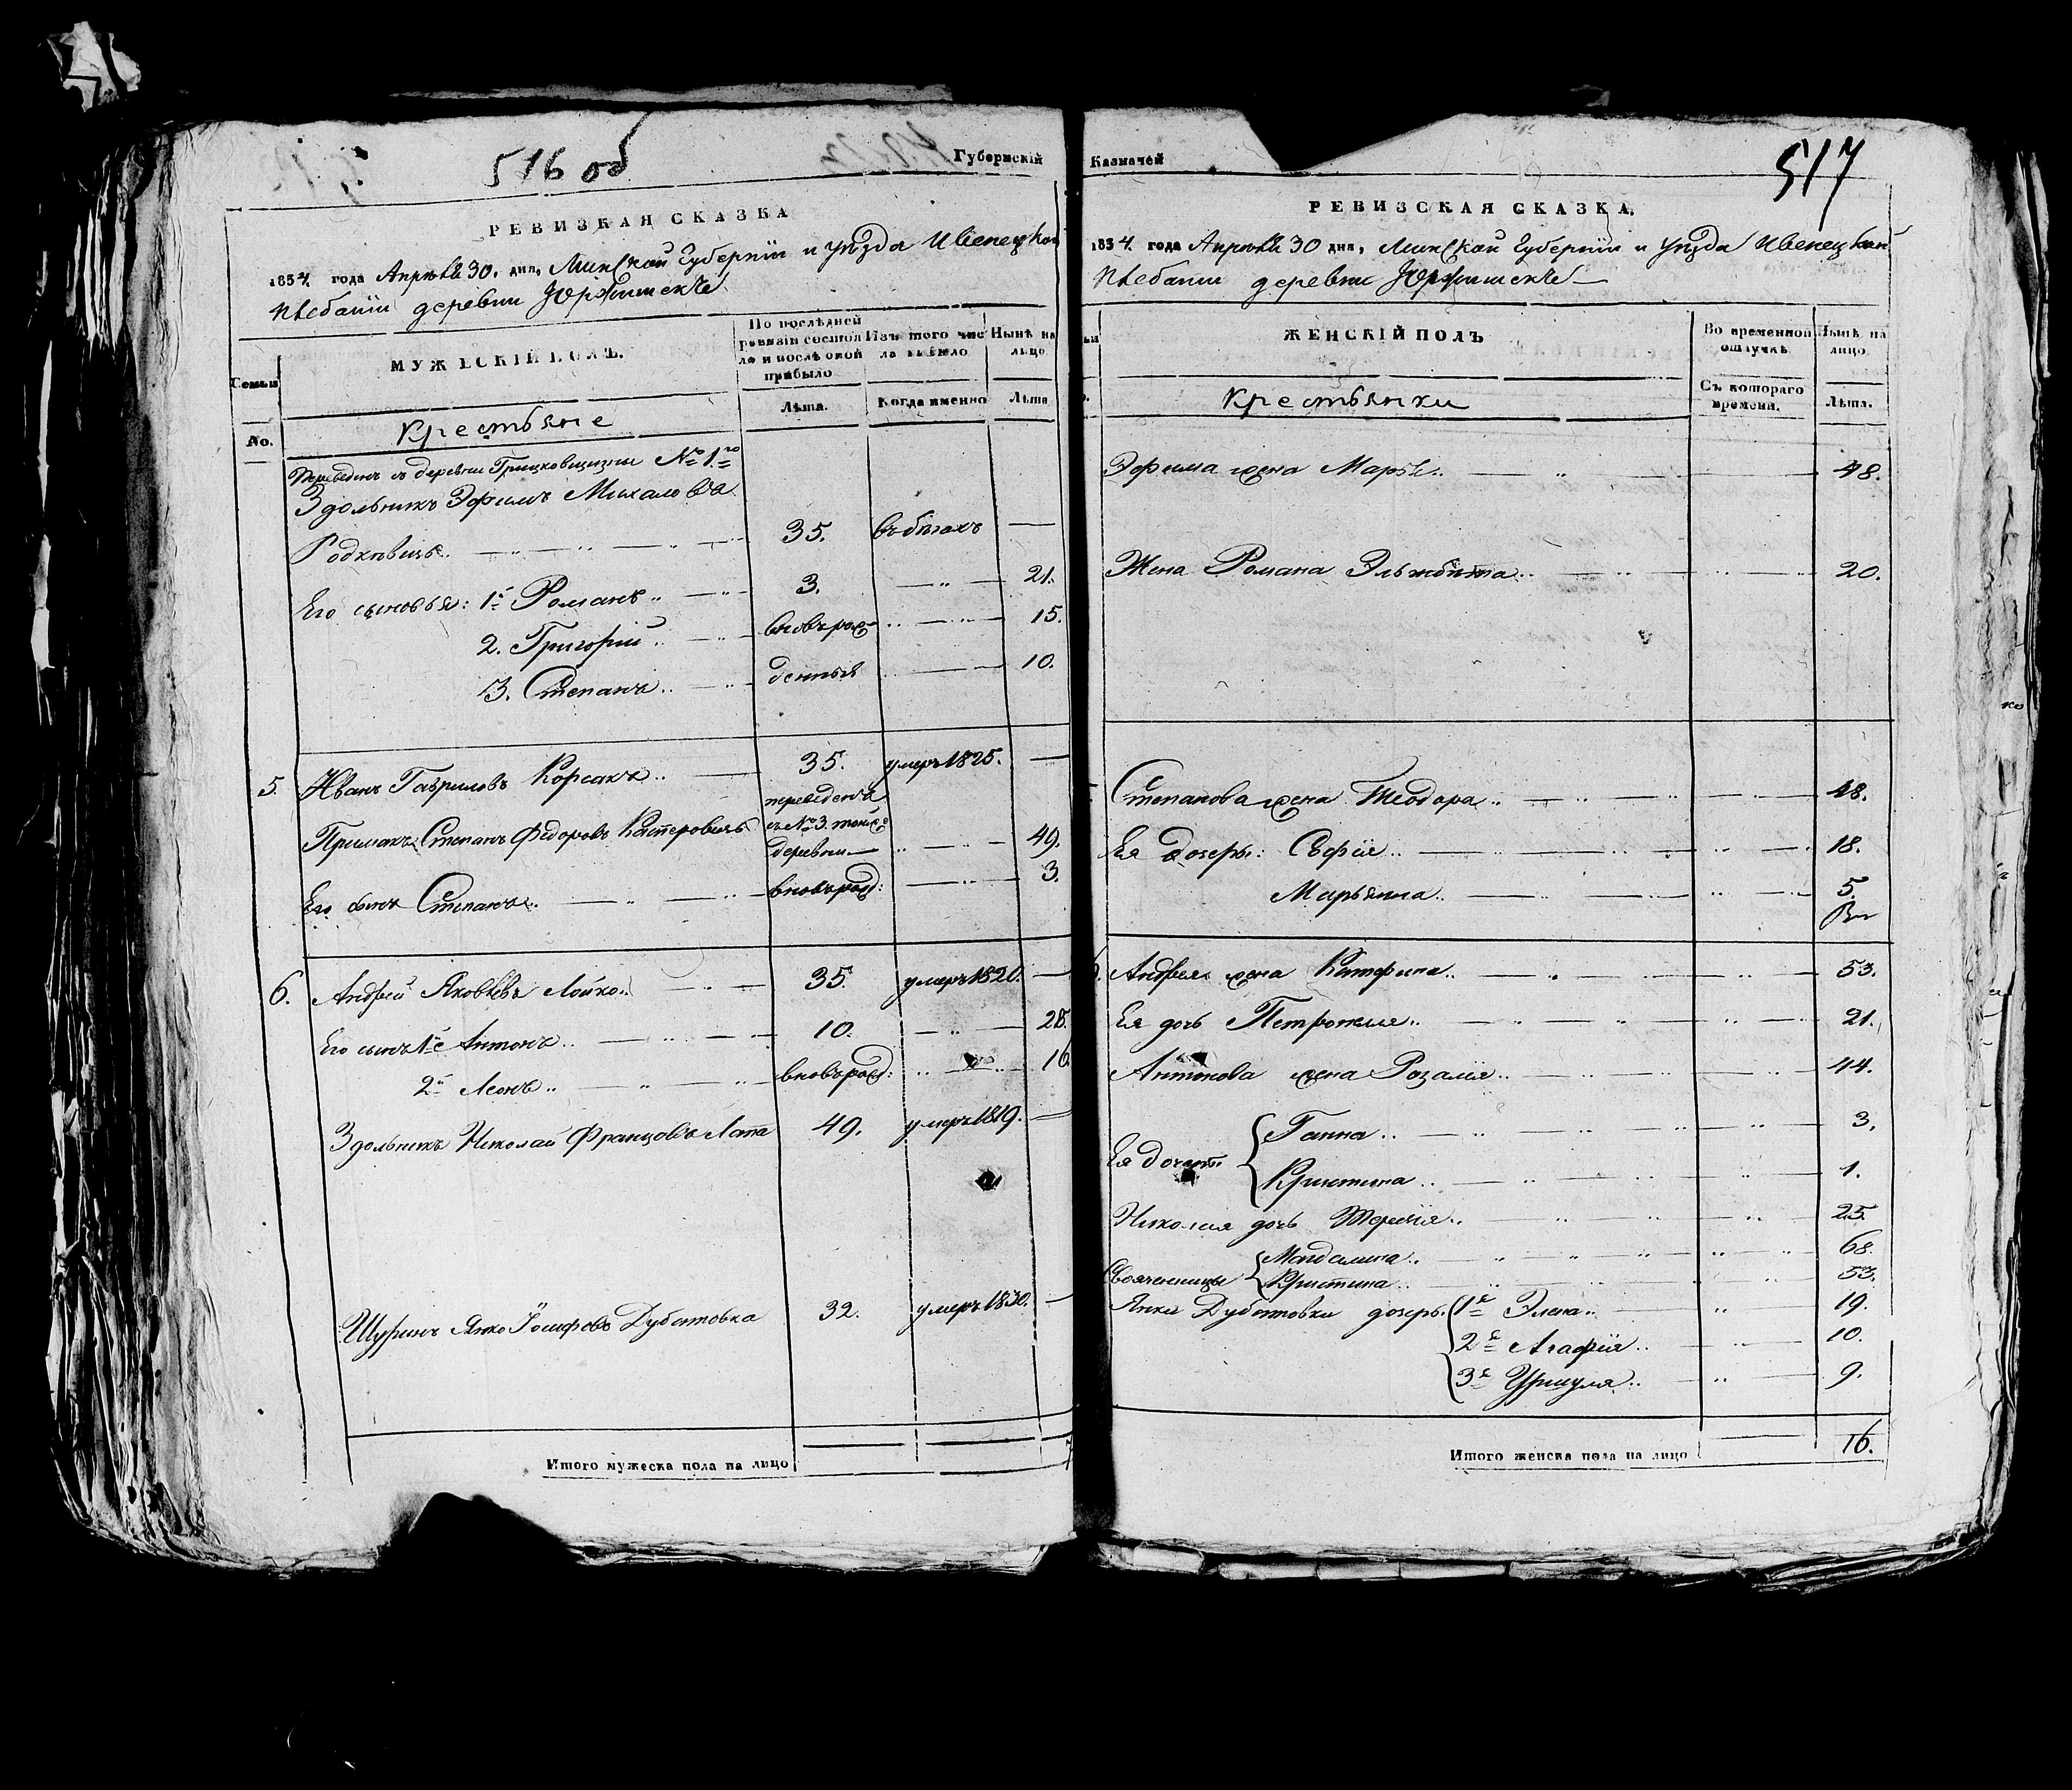 516 об
Губернскій
РЕВИЗКАЯ СКАЗКА
1834 года Апрѣля 30. дня, Минской Губерніи и уѣзда Ивенецкой
Плебаніи деревни
Семьи
No.
МУЖЕСКІЙ ПОЛЪ.
По послѣдней ревизіи состояло и послѣ оной прибыло
Изъ того числа выбыло
Нынѣ на лицо
Лѣта.
Когда именно
Лѣта
Крестьяне
Переведенъ съ деревни Грицковщизны № 1го
Здольникъ Эфимъ Михаловъ
Родкѣвичъ 35. въ бѣгахъ —
Его сыновья: 1й Романъ 3. 21.
2. Григорій вновърож 15.
3. Степанъ денныя 10.
5. Иванъ Гавриловъ Корсакъ 35. умеръ 1825. —
Примакъ Степанъ Федоровъ Касперовичъ переведенъ съ № 3. тойже деревни 49.
Его сынъ Степанъ вновърожд: 3.
6. Андрей Яковлевъ Лойко 35. умеръ 1820. —
Его сынъ 1й Антонъ 10. 28.
2й Леонъ вновърожд: 16
Здольникъ Николай Францовъ Лапа 49. умеръ 1819. —
Шуринъ Янко Іосифовъ Дубатовка 32. умеръ 1830. —
Итого мужеска пола на лицо 7
Казначей
517
РЕВИЗСКАЯ СКАЗКА.
1834. года Апрѣля 30 дня, Минской Губерніи и уѣзда Ивенецкой
Плебаніи деревни
ЖЕНСКІЙ ПОЛЪ
Во временной отлучкѣ
Нынѣ на лицо.
Съ котораго времени.
Лѣта.
Крестьянки
Эфима жена Марья 48.
Жена Романа Эльжбета 20.
Степанова жена Теодора 48.
Ея дочери: Софія 18.
Марьяна 5.
6. Андрея жена Катерина 53.
Ея дочь Петронеля 21.
Антонова жена Розалія 44.
Ея дочери Ганна 3.
Кристина 1.
Николая дочь Терезія 25.
Своячницы Магдалина 68.
Кристина 53.
Янки Дубатовки дочери 1я Элена 19.
2я Агафія 10.
3я Уршуля 9.
Итого женска пола на лицо 16.